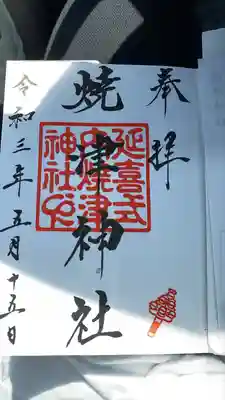 奉拝
焼津神社
延喜式
内焼津
神社之印
令和三年五月十五日